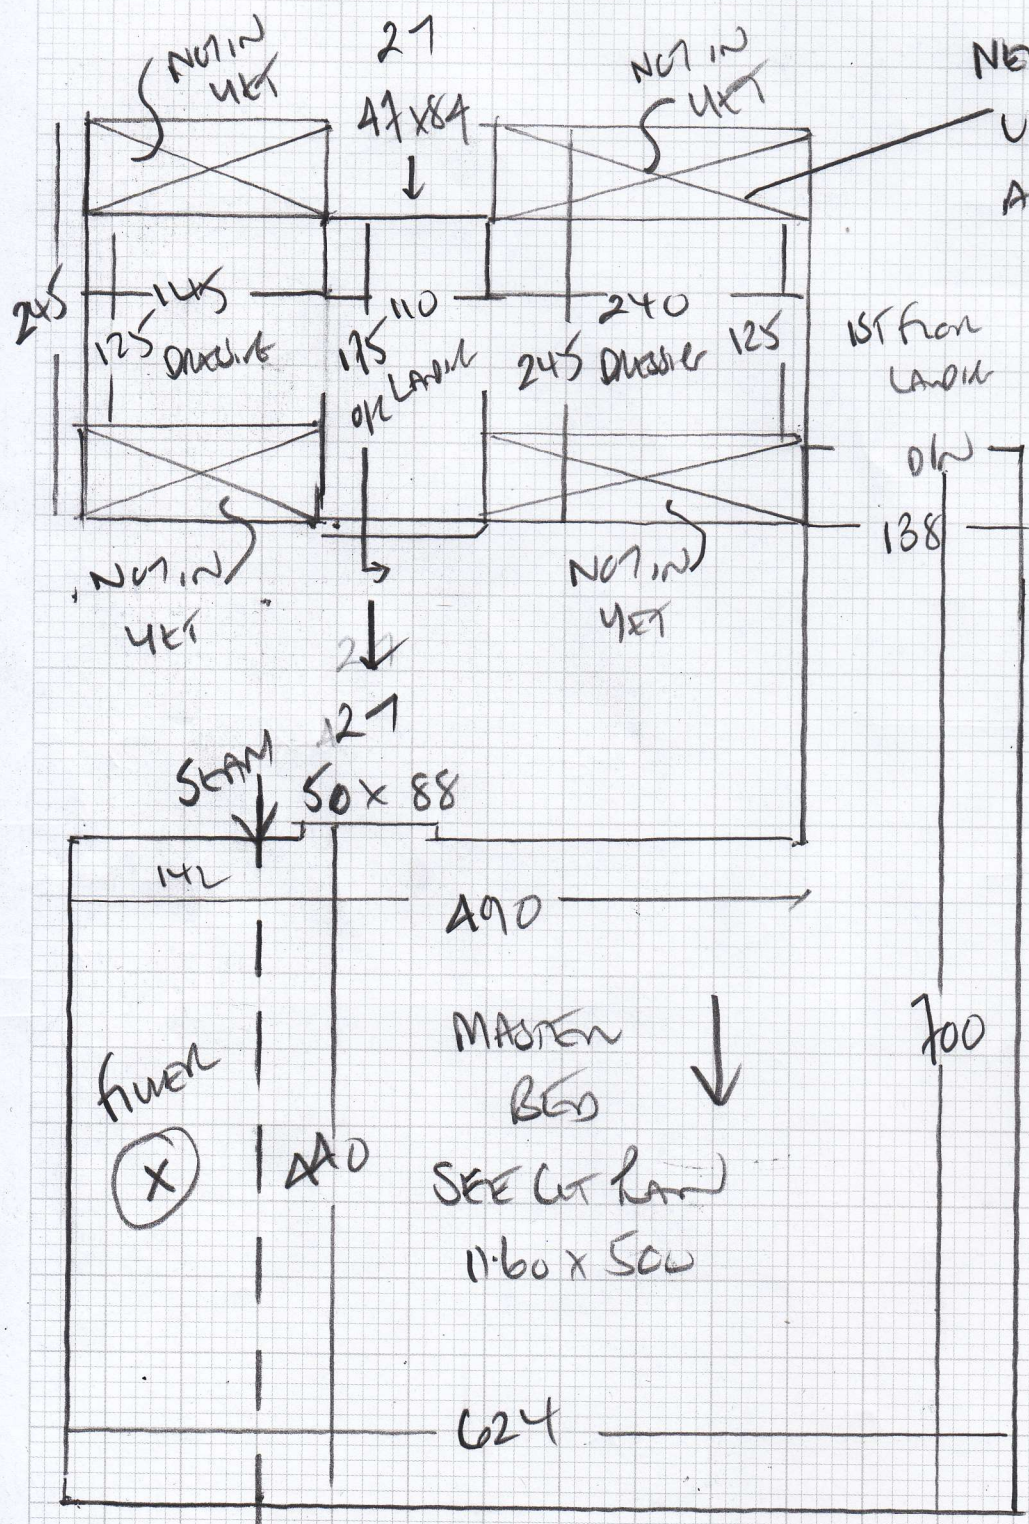 NOT IN
YET
27
47 x 84
NOT IN
YET
NE
U
A
245
145
125
DRESSING
110
175
O/R
LANDING
240
245
DRESSING
125
1ST FLOOR
LANDING
D/W
138
NOT IN
YET
NOT IN
YET
27
SEAM
50 x 88
142
490
MASTER
BED
SEE CUT PLAN
11.60 x 500
FILLER
X
440
700
624